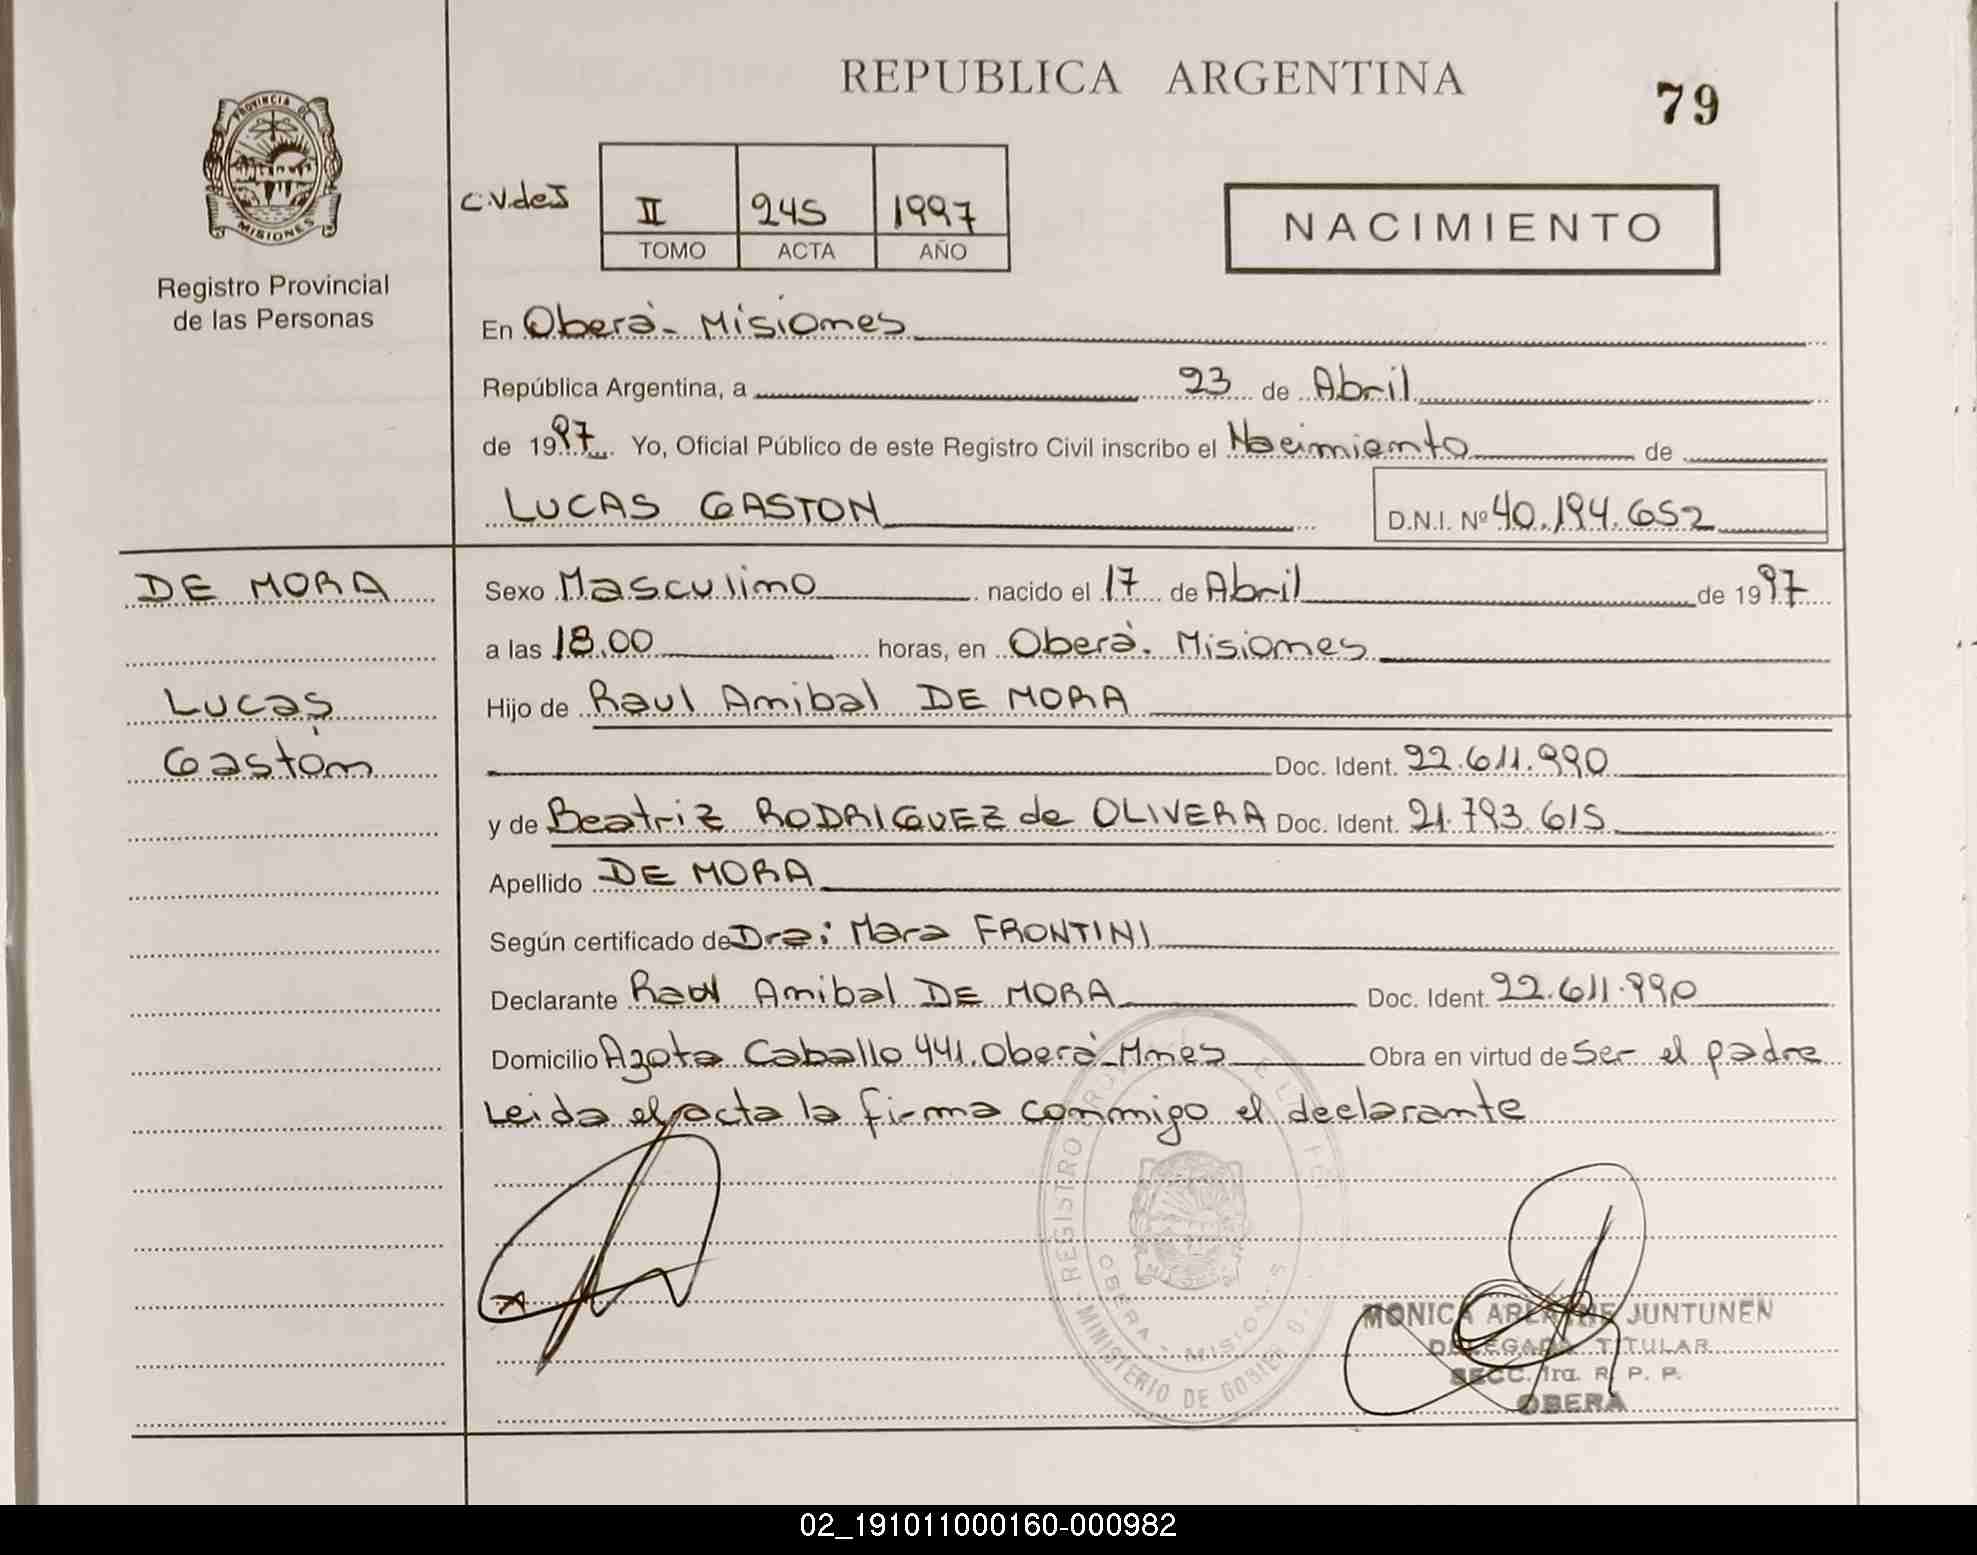 REPUBLICA ARGENTINA
79
PROVINCIA DE
MISIONES
Registro Provincial
de las Personas
C.V.deJ
II 245 1997
TOMO ACTA AÑO
NACIMIENTO
En Oberá- Misiones
República Argentina, a 23 de Abril
de 1997 Yo, Oficial Público de este Registro Civil inscribo el Nacimiento de
LUCAS GASTON D.N.I. Nº 40.194.652
DE MORA
Lucas
Gastón
Sexo Masculino nacido el 17 de Abril de 1997
a las 18.00 horas, en Oberá. Misiones
Hijo de Raul Anibal DE MORA
Doc. Ident. 22.611.990
y de Beatriz RODRIGUEZ de OLIVERA Doc. Ident. 21.793.615
Apellido DE MORA
Según certificado de Dra: Mara FRONTINI
Declarante Raul Anibal DE MORA Doc. Ident. 22.611.990
Domicilio Azota Caballo 441. Oberá-Mnes Obra en virtud de Ser el padre
Leida el acta la firma conmigo el declarante
REGISTRO
OBERA - MISIONES
MINISTERIO DE GOBIER
MONICA JUNTUNEN
DELEGADA TITULAR
SECC. 1ra. R. P. P.
OBERA
02_191011000160-000982